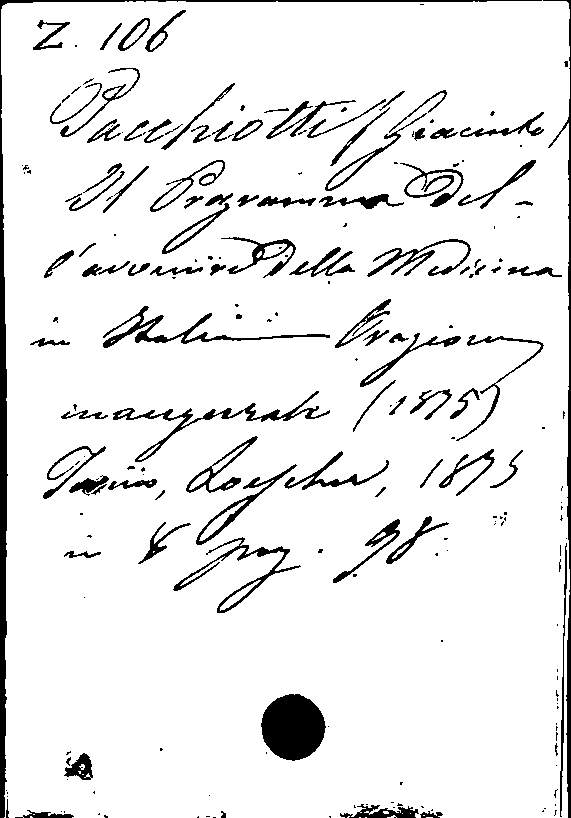 Z. 106
Pacchiotti (Giacinto)
Il Programma del-
l'avvenire della Medicina
in Italia Orazione
inaugurale (1875)
Torino, Loescher, 1875
in 8 pag. 98.